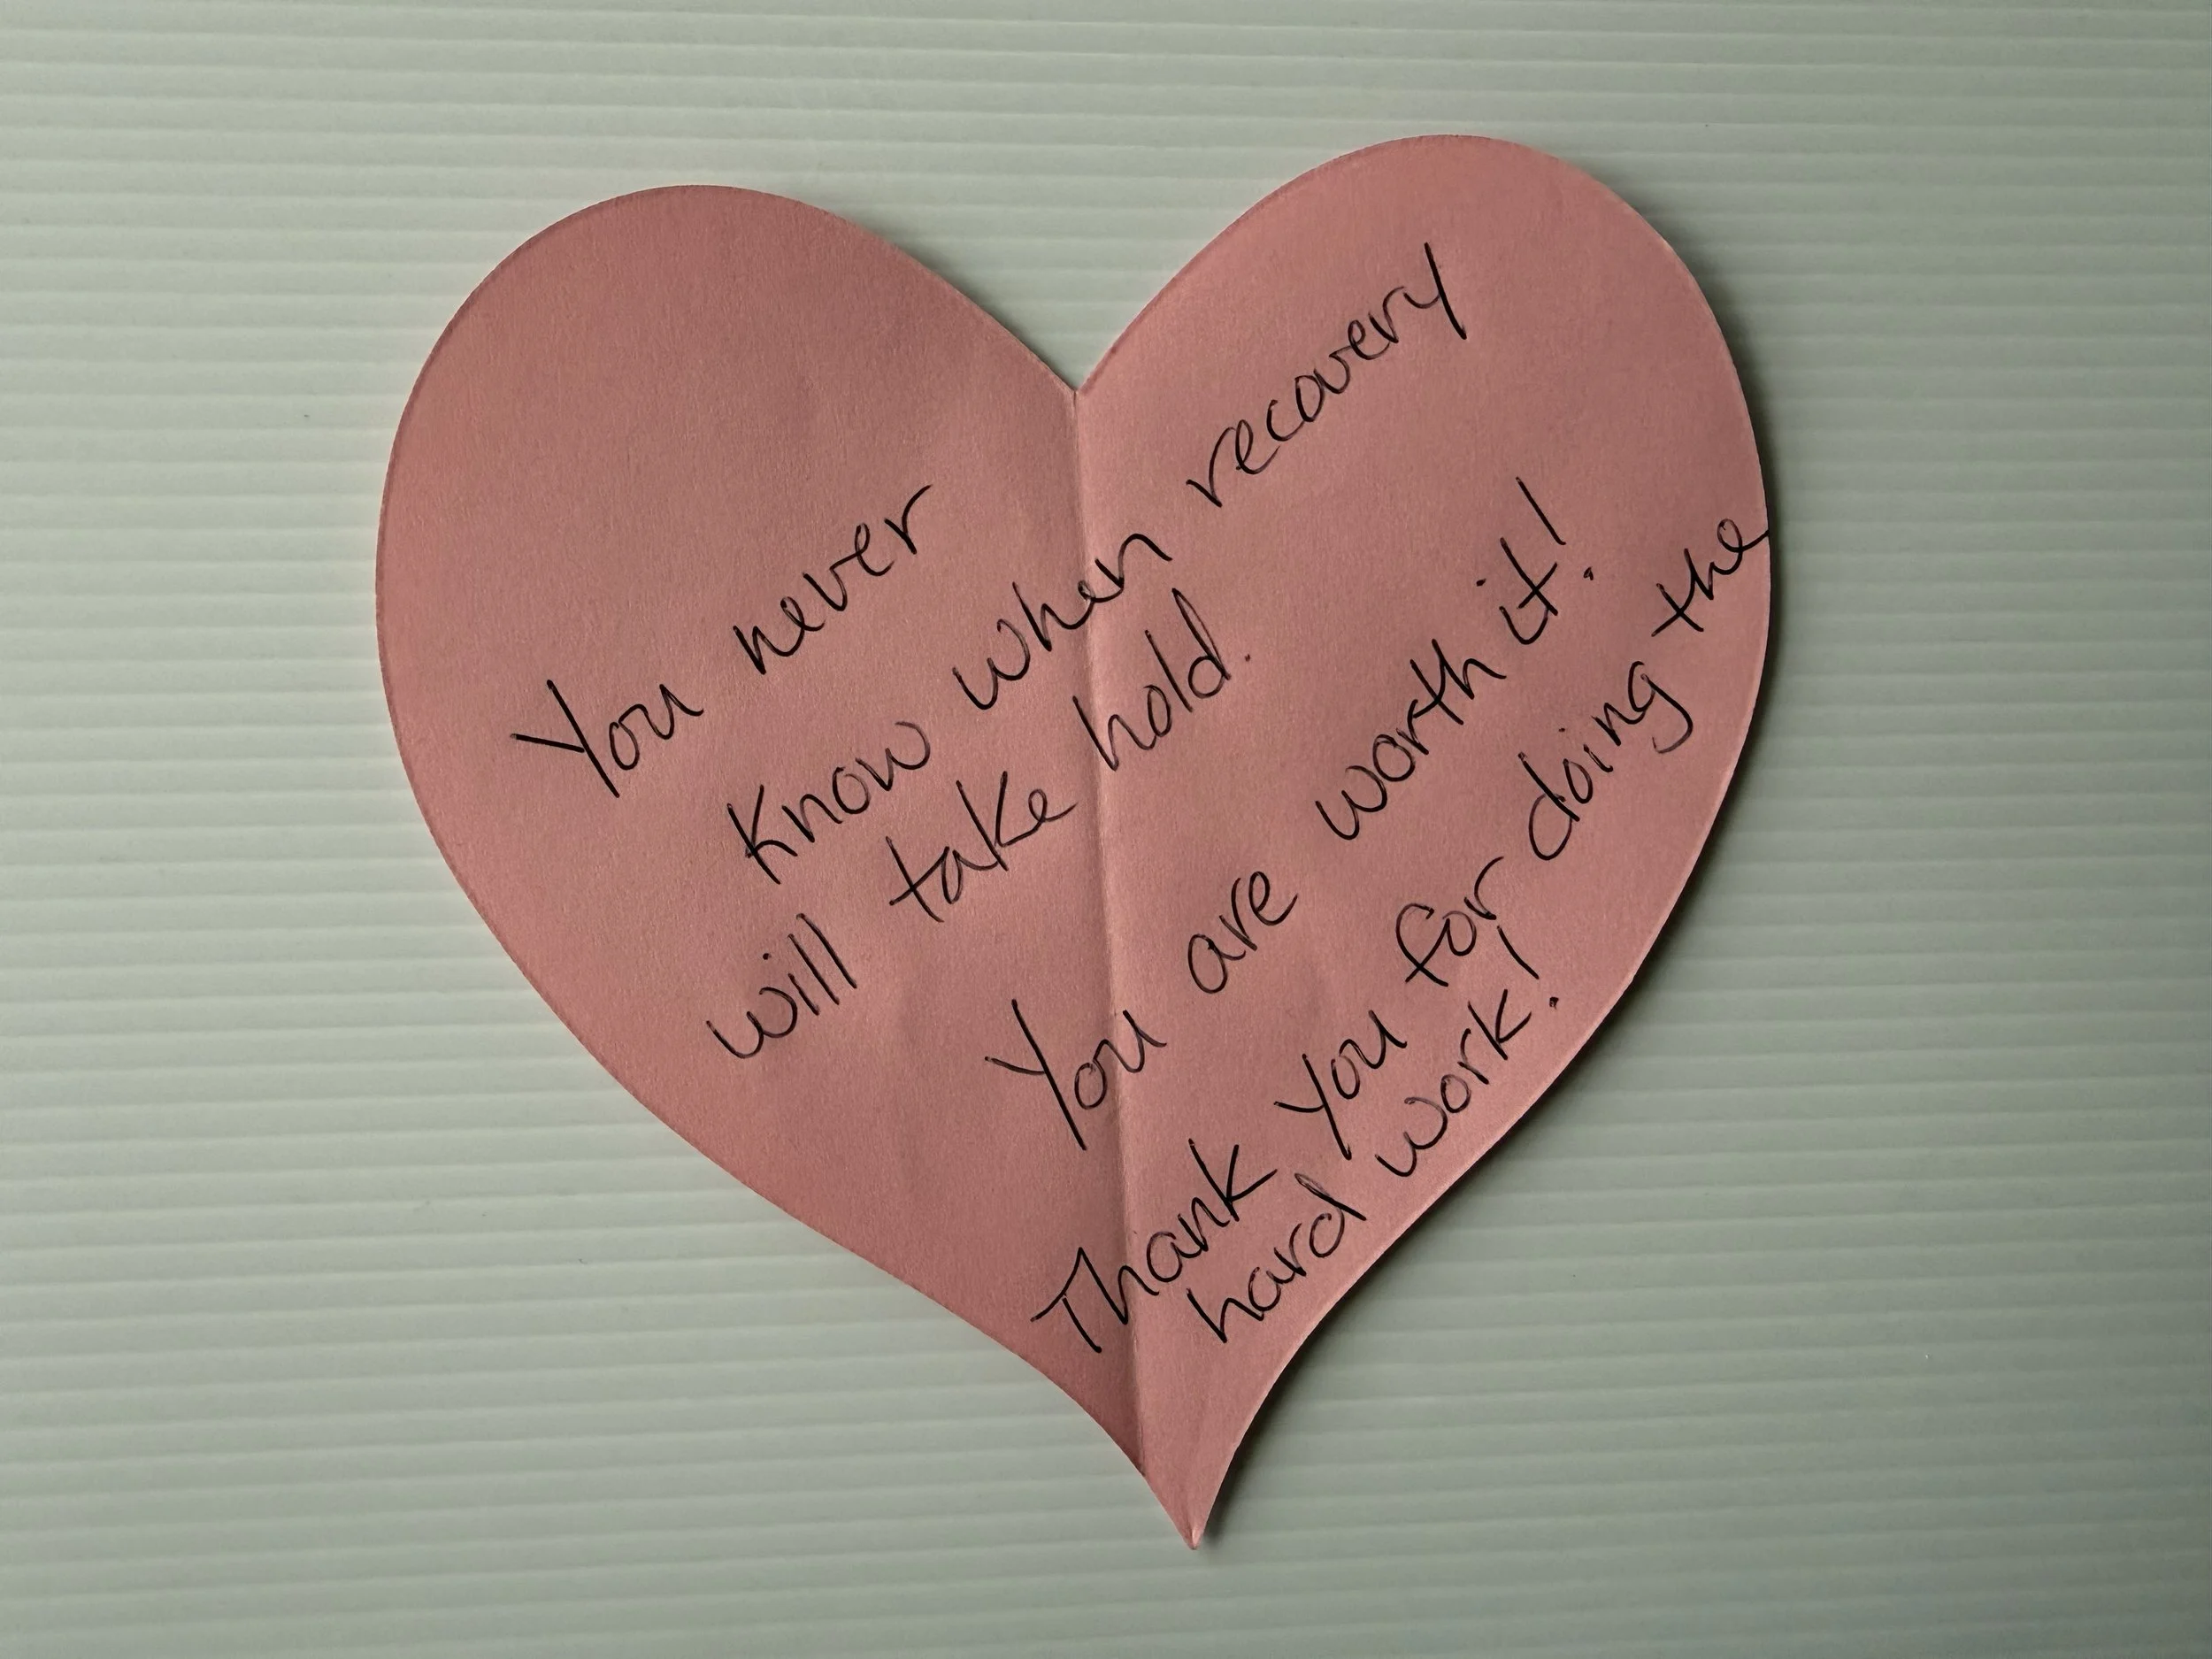 You never
Know when recovery
will take hold.
You are worth it!
Thank you for doing the
hard work!